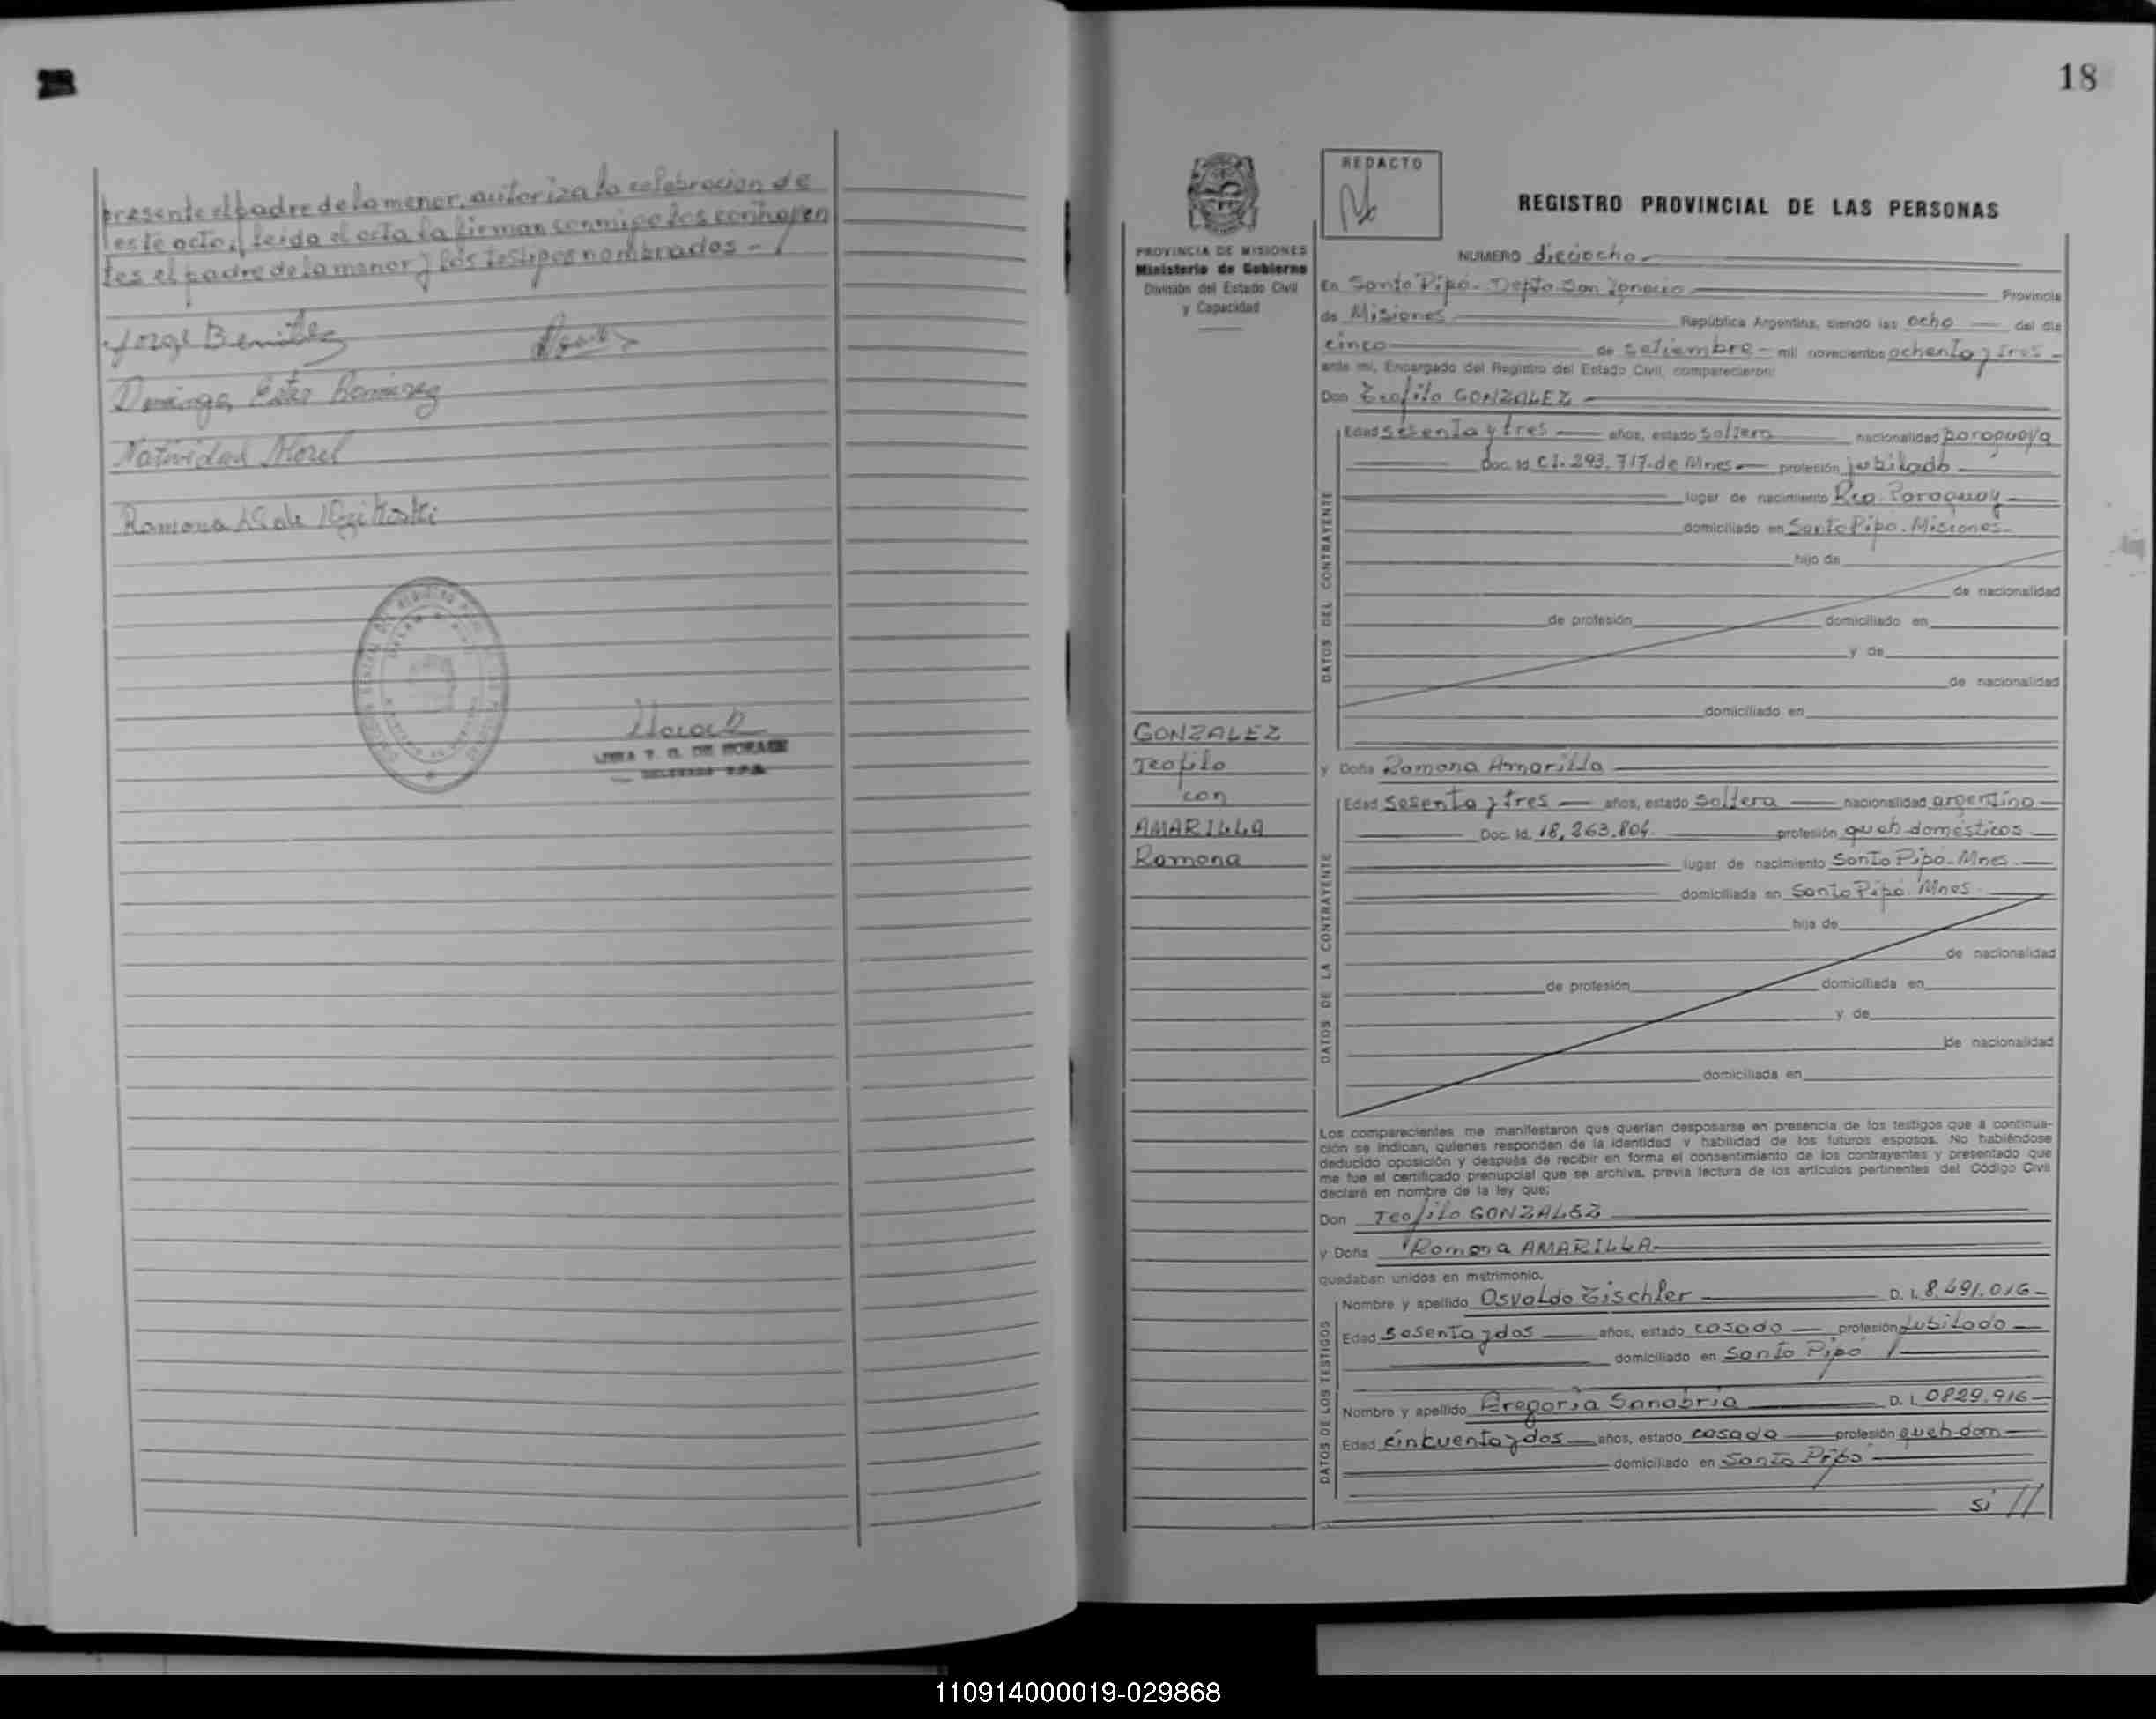 presente el padre de la menor, autoriza la celebracion de
este acto, leida el acta la firman conmigo los contrayen
tes el padre de la menor y los testigos nombrados -
Jorge Benitez
Dominga Ester Ramirez
Natividad Morel
Ramona
DE MORALES
18
REDACTO
PROVINCIA DE MISIONES
Ministerio de Gobierno
División del Estado Civil
y Capacidad
REGISTRO PROVINCIAL DE LAS PERSONAS
NUMERO dieciocho
En Santo Pipó - Depto San Ignacio Provincia
de Misiones República Argentina, siendo las ocho del día
cinco de setiembre mil novecientos ochenta y tres
ante mí, Encargado del Registro del Estado Civil, comparecieron:
Don Teofilo GONZALEZ
DATOS DEL CONTRAYENTE
Edad sesenta y tres años, estado soltero nacionalidad paraguaya
Doc. Id. C I. 293.717. de Mnes profesión jubilado
lugar de nacimiento Rca. Paraguay
domiciliado en Santo Pipó. Misiones
hijo de
de nacionalidad
de profesión domiciliado en
y de
de nacionalidad
domiciliado en
GONZALEZ
Teofilo
con
AMARILLA
Ramona
y Doña Ramona Amarilla
DATOS DE LA CONTRAYENTE
Edad sesenta y tres años, estado soltera nacionalidad argentina
Doc. Id. 18,263,804 profesión queh domésticos
lugar de nacimiento Santo Pipó - Mnes
domiciliada en Santo Pipó. Mnes
hija de
de nacionalidad
de profesión domiciliada en
y de
de nacionalidad
domiciliada en
Los comparecientes me manifestaron que querían desposarse en presencia de los testigos que a continua-
ción se indican, quienes responden de la identidad y habilidad de los futuros esposos. No habiéndose
deducido oposición y después de recibir en forma el consentimiento de los contrayentes y presentado que
me fue el certificado prenupcial que se archiva, previa lectura de los artículos pertinentes del Código Civil
declaré en nombre de la ley que;
Don Teofilo GONZALEZ
y Doña Ramona AMARILLA
quedaban unidos en matrimonio.
DATOS DE LOS TESTIGOS
Nombre y apellido Osvaldo Tischler D. I. 8.491.016
Edad sesenta y dos años, estado casado profesión jubilado
domiciliado en Santo Pipó
Nombre y apellido Gregoria Sanabria D. I. 0829.916
Edad cinkuenta y dos años, estado casada profesión queh-dom
domiciliado en Santo Pipó
si //
110914000019-029868